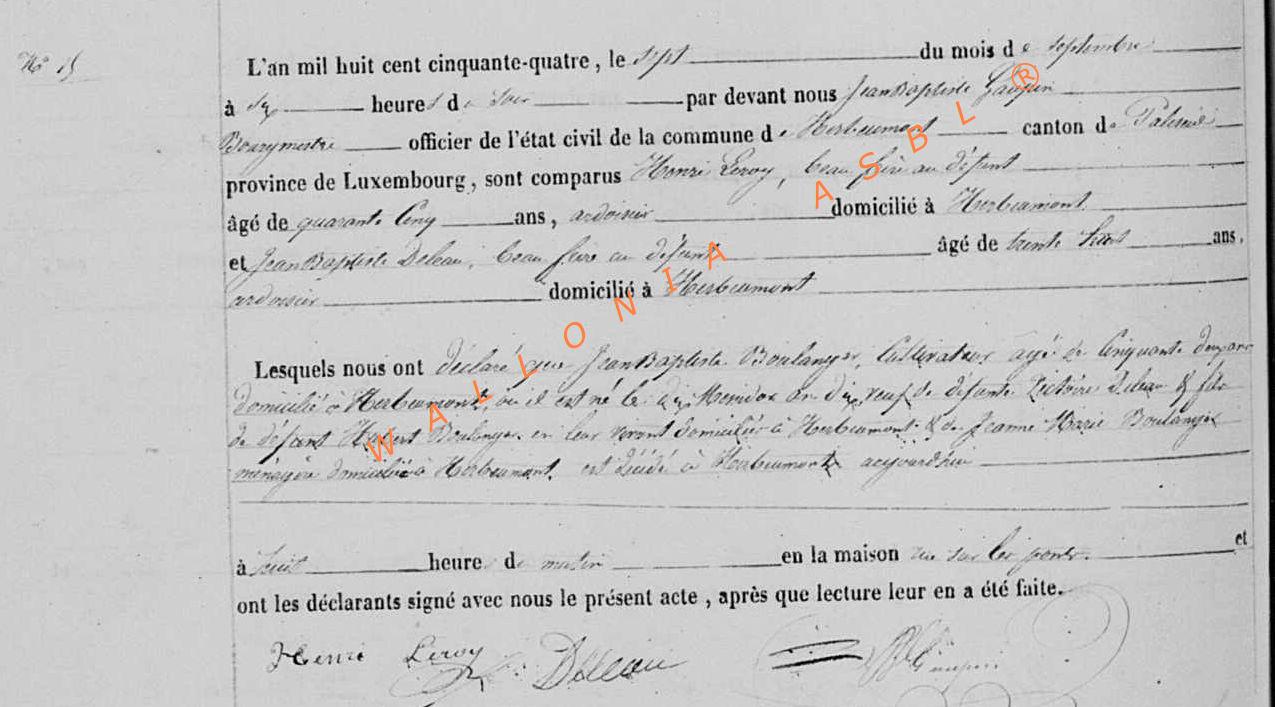 No 15
L'an mil huit cent cinquante-quatre, le sept du mois de septembre
à six heures de soir par devant nous JeanBaptiste Gaupin
Bourgmestre officier de l'état civil de la commune de Herbeumont canton de Paliseul
province de Luxembourg, sont comparus Henri Leroy, beau frère au défunt
âgé de quarante cinq ans, ardoisier domicilié à Herbeumont
et JeanBaptiste Deleau, beau frère au défunt âgé de trente huit ans,
ardoisier domicilié à Herbeumont
Lesquels nous ont déclaré que JeanBaptiste Boulanger, Cultivateur agé de Cinquante deux ans
domicilié à Herbeumont, où il est né le Messidor an dix veuf de défunte Victoire Deleau & fils
de défunt Hubert Boulanger en leur vivant domiciliés à Herbeumont & de Jeanne Marie Boulanger
menagère domiciliée à Herbeumont, est décédé à Herbeumont aujourd'hui
à huit heure de matin en la maison rue sur les ponts. et
ont les déclarants signé avec nous le présent acte, après que lecture leur en a été faite.
Henri Leroy Deleau
WALLONIA ASBL ®